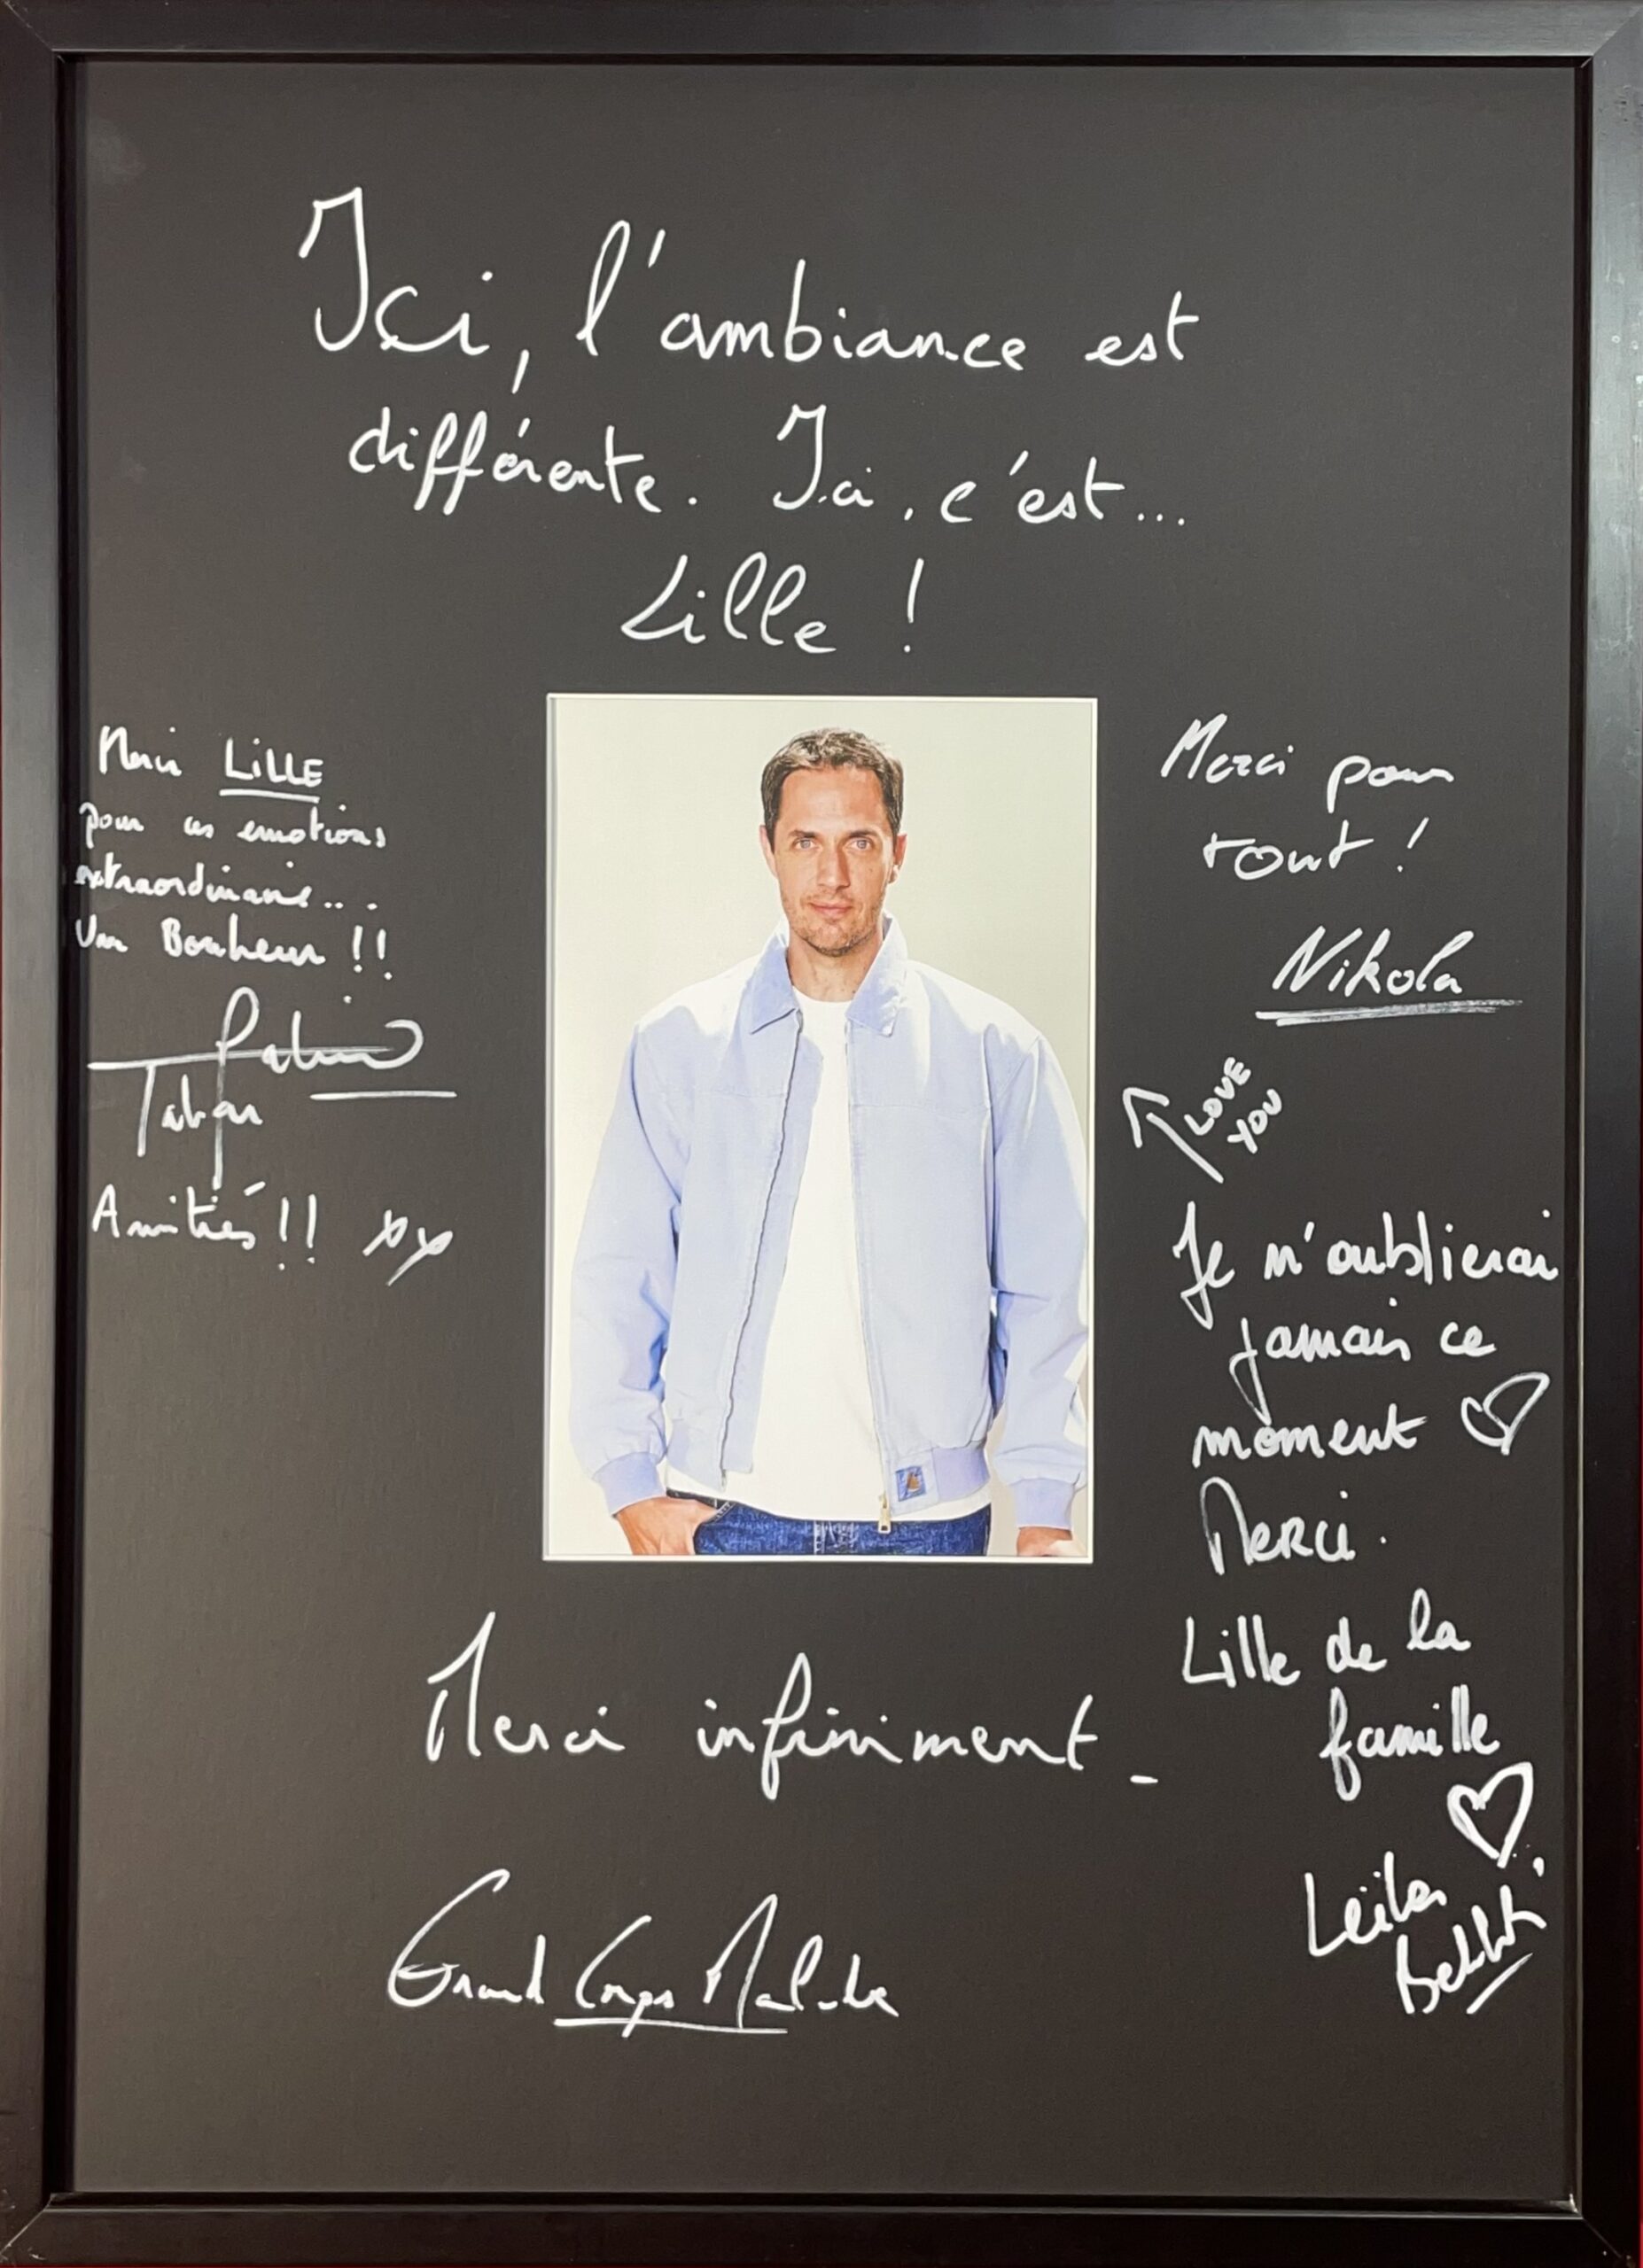 Ici, l'ambiance est
différente. Ici, c'est...
Lille !
Merci LILLE
pour ces emotions
extraordinaire...
Un Bonheur !!
Rahim
Tahar
Amitiés !!
Merci pour
tout !
Nikola
LOVE
YOU
Je n'oublierai
jamais ce
moment
Merci.
Lille de la
famille
Leïla
Bekhti
Merci infiniment_
Grand Corps Malade